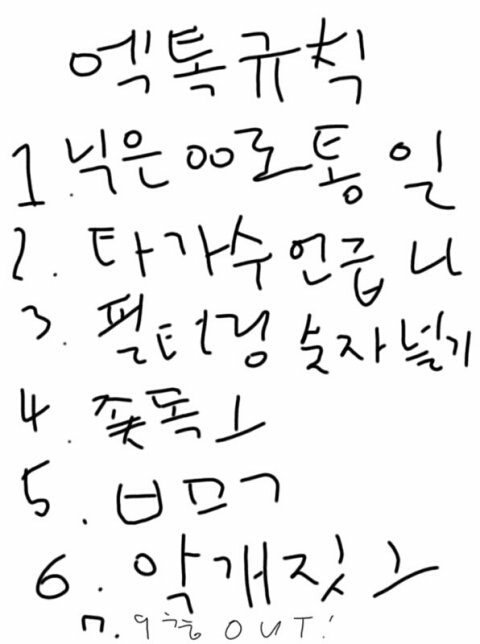 엑톡규칙
1. 닉은 00로통일
2. 타가수언급 ㄴ
3. 필터링 숫자 넣기
4. 쫒톡ㅗ
5. ㅂㅁㄱ
6. 악개짓ㅗ
ㄲ. 9층 OUT!